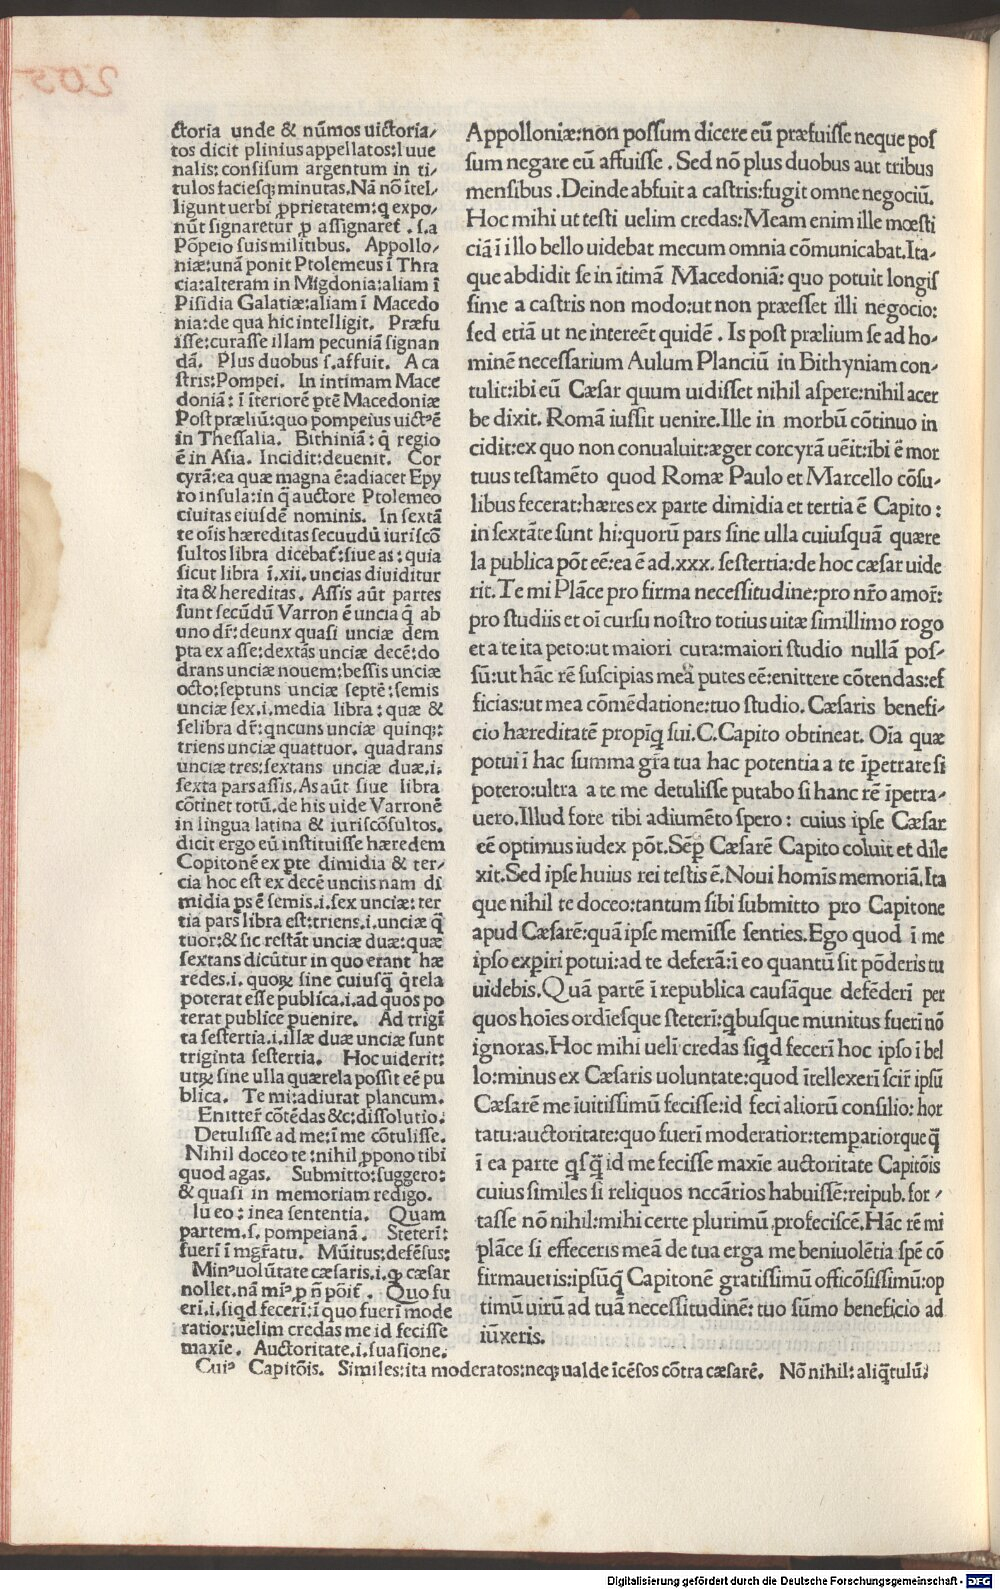 ctoria unde & nūmos uictoria/
tos dicit plinius appellatos:Iuue
nalis: consisum argentum in ti/
tulos faciesq; minutas.Nā nō ītel/
ligunt uerbi ꝓprietatem: q expo/
nūt signaretur ꝓ assignaret̄. s.a
Pōpeio suis militibus. Appollo/
niæ:unā ponit Ptolemeus ī Thra
cia:alteram in Migdonia:aliam ī
Pisidia Galatiæ:aliam ī Macedo
nia:de qua hic intelligit. Præfu
isse:curasse illam pecuniā signan
dā. Plus duobus s.affuit. A ca
stris:Pompei. In intimam Mace
doniā: ī īteriorē ꝑtē Macedoniæ
Post præliū:quo pompeius uictꝰē
in Thessalia. Bithiniā: q̄ regio
ē in Asia. Incidit:deuenit. Cor
cyrā:ea quæ magna ē:adiacet Epy
ro insula:in q̄ auctore Ptolemeo
ciuitas eiusdē nominis. In sextā
te oīis hæreditas secuudū iuriscō
sultos libra dicebat̄:siue as: quia
sicut libra ī.xii. uncias diuiditur
ita & hereditas. Assis aūt partes
sunt secūdū Varron ē uncia q̄ ab
uno dr̄: deunx quasi unciæ dem
pta ex asse:dextās unciæ decē:do
drans unciæ nouem:bessis unciæ
octo:septuns unciæ septē:semis
unciæ sex.i.media libra: quæ &
selibra dr̄:qncuns unciæ quinq;:
triens unciæ quattuor. quadrans
unciæ tres:sextans unciæ duæ.i.
sexta pars assis.As aūt siue libra
cōtinet totū.de his uide Varronē
in lingua latina & iuriscōsultos.
dicit ergo eū instituisse hæredem
Copitonē ex ꝑte dimidia & ter/
cia hoc est ex decē unciis nam di
midia ꝑs ē semis.i.sex unciæ: ter
tia pars libra est:triens.i.unciæ q̄
tuor:& sic restāt unciæ duæ:quæ
sextans dicūtur in quo erant hæ
redes.i. quoꝝ sine cuiusq̄ q̄rela
poterat esse publica.i.ad quos po
terat publice ꝑuenire. Ad trigī
ta sestertia.i.illæ duæ unciæ sunt
triginta sestertia. Hoc uiderit:
utꝝ sine ulla quærela possit eē pu
blica. Te mi:adiurat plancum.
Enitter̄ cōtēdas &c:dissolutio.
Detulisse ad me:ī me cōtulisse.
Nihil doceo te:nihil ꝓpono tibi
quod agas. Submitto:suggero:
& quasi in memoriam redigo.
Iu eo: inea sententia. Quam
partem.s.pompeianā. Steterī:
fuerī ī mgr̄atu. Mūitus:defēsus:
Minꝰuolūtate cæsaris.i.ꝙ cæsar
nollet.nā miꝰ ꝓ n̄ pōit̄. Quo fu
erī.i.siqd fecerī:ī quo fuerī mode
ratior:uelim credas me id fecisse
maxīe. Auctoritate.i.suasione.
Cuiꝰ Capitōis. Similes:ita moderatos:neq; ualde īcēsos cōtra cæsarē. Nō nihil: aliq̄tulū:
Appolloniæ:non possum dicere eū præfuisse neque pos
sum negare eū affuisse. Sed nō plus duobus aut tribus
mensibus. Deinde abfuit a castris:fugit omne negociū.
Hoc mihi ut testi uelim credas:Meam enim ille mœsti
ciā ī illo bello uidebat mecum omnia cōmunicabat.Ita-
que abdidit se in ītimā Macedoniā: quo potuit longis
sime a castris non modo:ut non præesset illi negocio:
sed etiā ut ne interēet quidē. Is post prælium se ad ho-
minē necessarium Aulum Planciū in Bithyniam con-
tulit:ibi eū Cæsar quum uidisset nihil aspere:nihil acer
be dixit. Romā iussit uenire.Ille in morbū cōtinuo in
cidit:ex quo non conualuit:æger corcyrā uēit:ibi ē mor
tuus testamēto quod Romæ Paulo et Marcello cōsu-
libus fecerat:hæres ex parte dimidia et tertia ē Capito:
in sextāte sunt hi:quorū pars sine ulla cuiusquā quære
la publica pōt eē:ea ē ad.xxx. sestertia:de hoc cæsar uide
rit.Te mi Plāce pro firma necessitudine:pro nr̄o amor̄:
pro studiis et oī cursu nostro totius uitæ simillimo rogo
et a te ita peto:ut maiori cura:maiori studio nullā pos-
sū:ut hāc rē suscipias meā putes eē:enittere cōtendas:ef
ficias:ut mea cōmēdatione:tuo studio. Cæsaris benefi-
cio hæreditatē propīq̄ sui.C.Capito obtineat. Oīa quæ
potui ī hac summa gr̄a tua hac potentia a te īpetrare si
potero:ultra a te me detulisse putabo si hanc rē īpetra-
uero.Illud fore tibi adiumēto spero: cuius ipse Cæsar
eē optimus iudex pōt.Sēꝑ Cæsarē Capito coluit et dile
xit.Sed ipse huius rei testis ē.Noui homīs memoriā.Ita
que nihil te doceo:tantum sibi submitto pro Capitone
apud Cæsarē:quā ipse memīsse senties.Ego quod ī me
ipso exꝑiri potui:ad te deferā:ī eo quantū sit pōderis tu
uidebis.Quā partē ī republica causāque defēderī per
quos hoīes ordīesque steterī:qbusque munitus fuerī nō
ignoras.Hoc mihi uelī credas siqd fecerī hoc ipso ī bel
lo:minus ex Cæsaris uoluntate:quod ītellexerī scir̄ ipsū
Cæsarē me īuitissimū fecisse:id feci aliorū consilio: hor
tatu:auctoritate:quo fuerī moderatior:temꝑatiorque q̄
ī ea parte qsq̄ id me fecisse maxīe auctoritate Capitōis
cuius similes si reliquos nccārios habuissē:reipub.for/
tasse nō nihil:mihi certe plurimū ꝓfecisscē.Hāc rē mi
plāce si effeceris meā de tua erga me beniuolētia spē cō
firmaueris:ipsūq̄ Capitonē gratissimū officōsissimū:op
timū uirū ad tuā necessitudinē: tuo sūmo beneficio ad
iūxeris.
205
Digitalisierung gefördert durch die Deutsche Forschungsgemeinschaft - DFG